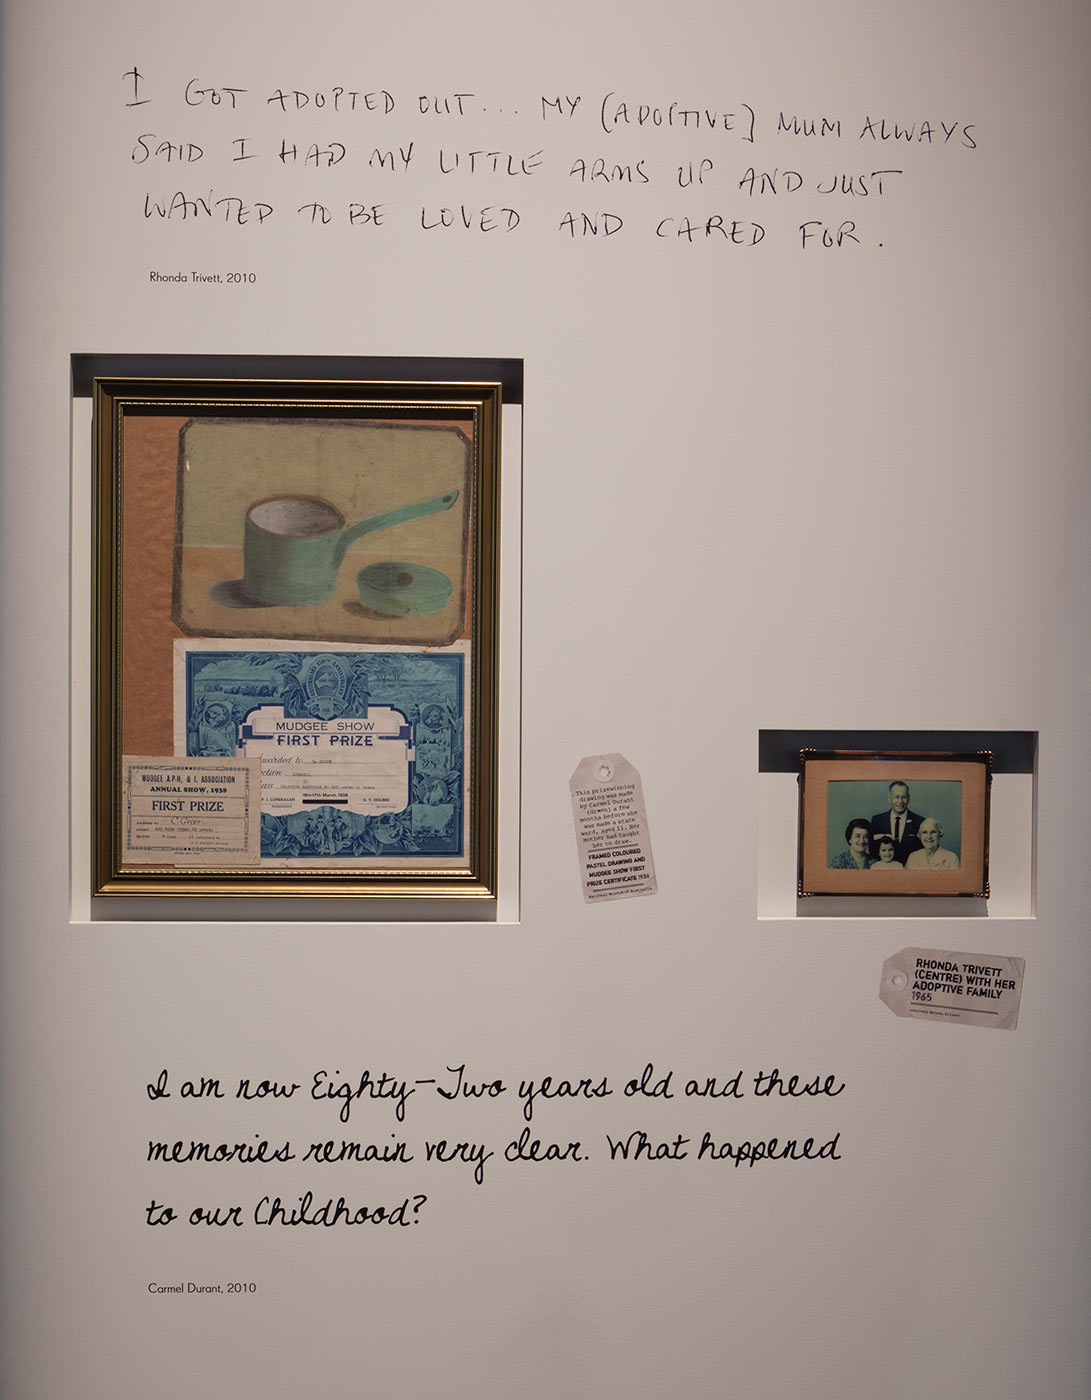 I GOT ADOPTED OUT... MY [ADOPTIVE] MUM ALWAYS
SAID I HAD MY LITTLE ARMS UP AND JUST
WANTED TO BE LOVED AND CARED FOR.
Rhonda Trivett, 2010
MUDGEE SHOW
FIRST PRIZE
warded to
ction
ass
16th-17th March, 1938
MUDGEE A.P.H. & I. ASSOCIATION
ANNUAL SHOW, 1938
FIRST PRIZE
C. Green
This prizewinning
drawing was made
by Carmel Durant
(Green) a few
months before she
was made a state
ward, aged 11. Her
mother had taught
her to draw.
FRAMED COLOURED
PASTEL DRAWING AND
MUDGEE SHOW FIRST
PRIZE CERTIFICATE 1938
National Museum of Australia
RHONDA TRIVETT
(CENTRE) WITH HER
ADOPTIVE FAMILY
1965
Courtesy Rhonda Trivett
I am now Eighty-Two years old and these
memories remain very clear. What happened
to our Childhood?
Carmel Durant, 2010